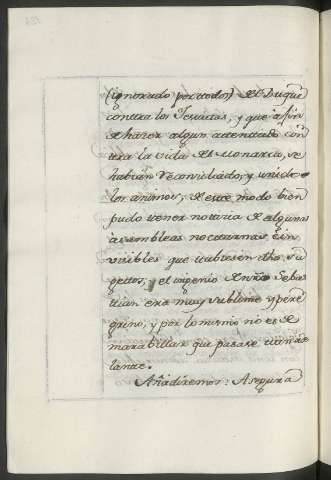 (ignorado por todos) Del Duque
contra los Jesuitas, y que a fin
de hacer algun atentado con
tra la vida del Monarca, se
habian reconciliado, y unido
los animos; de este modo bien
pudo tener noticia de algunas
asembleas nocturnas, e in
visibles que tubiesen dhos su
getos, y el ingenio de nro Sebas
tian era muy sublime y pere
grino, y por lo mismo no es de
marabillar que pasase tan ade
lante.
Añadiremos: Asegura